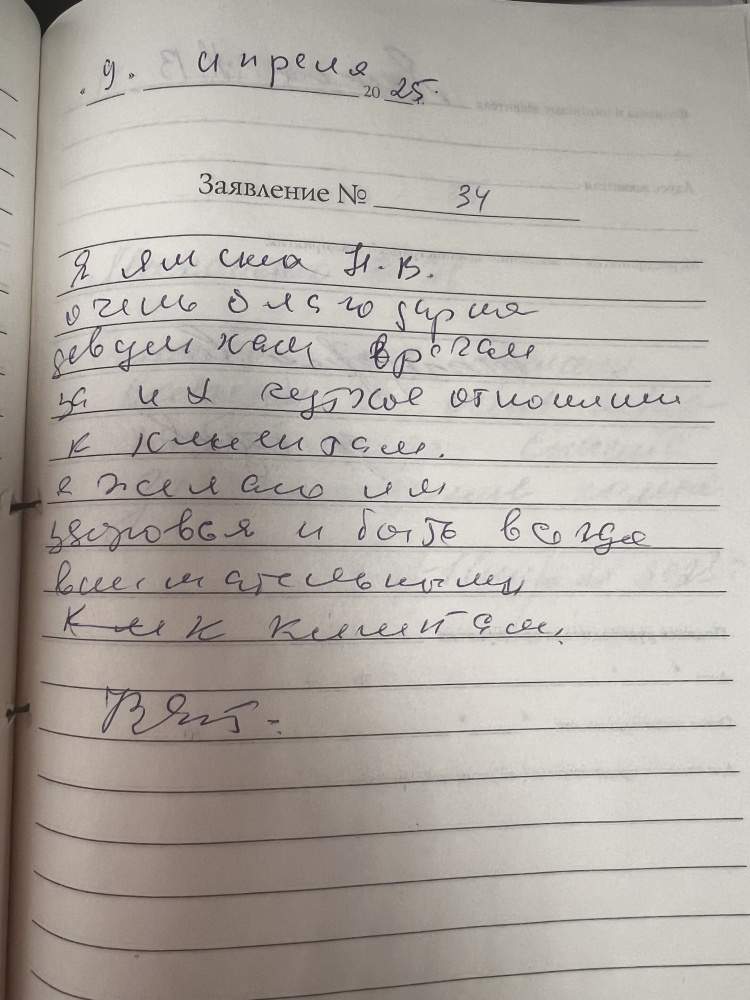 « 9 » апреля 20 25.
Заявление № 34
Я Н. В.
очень благодарна
девушкам врачам
за их чуткое отношение
к клиентам.
я желаю им
здоровья и быть всегда
внимательными
к клиентам.